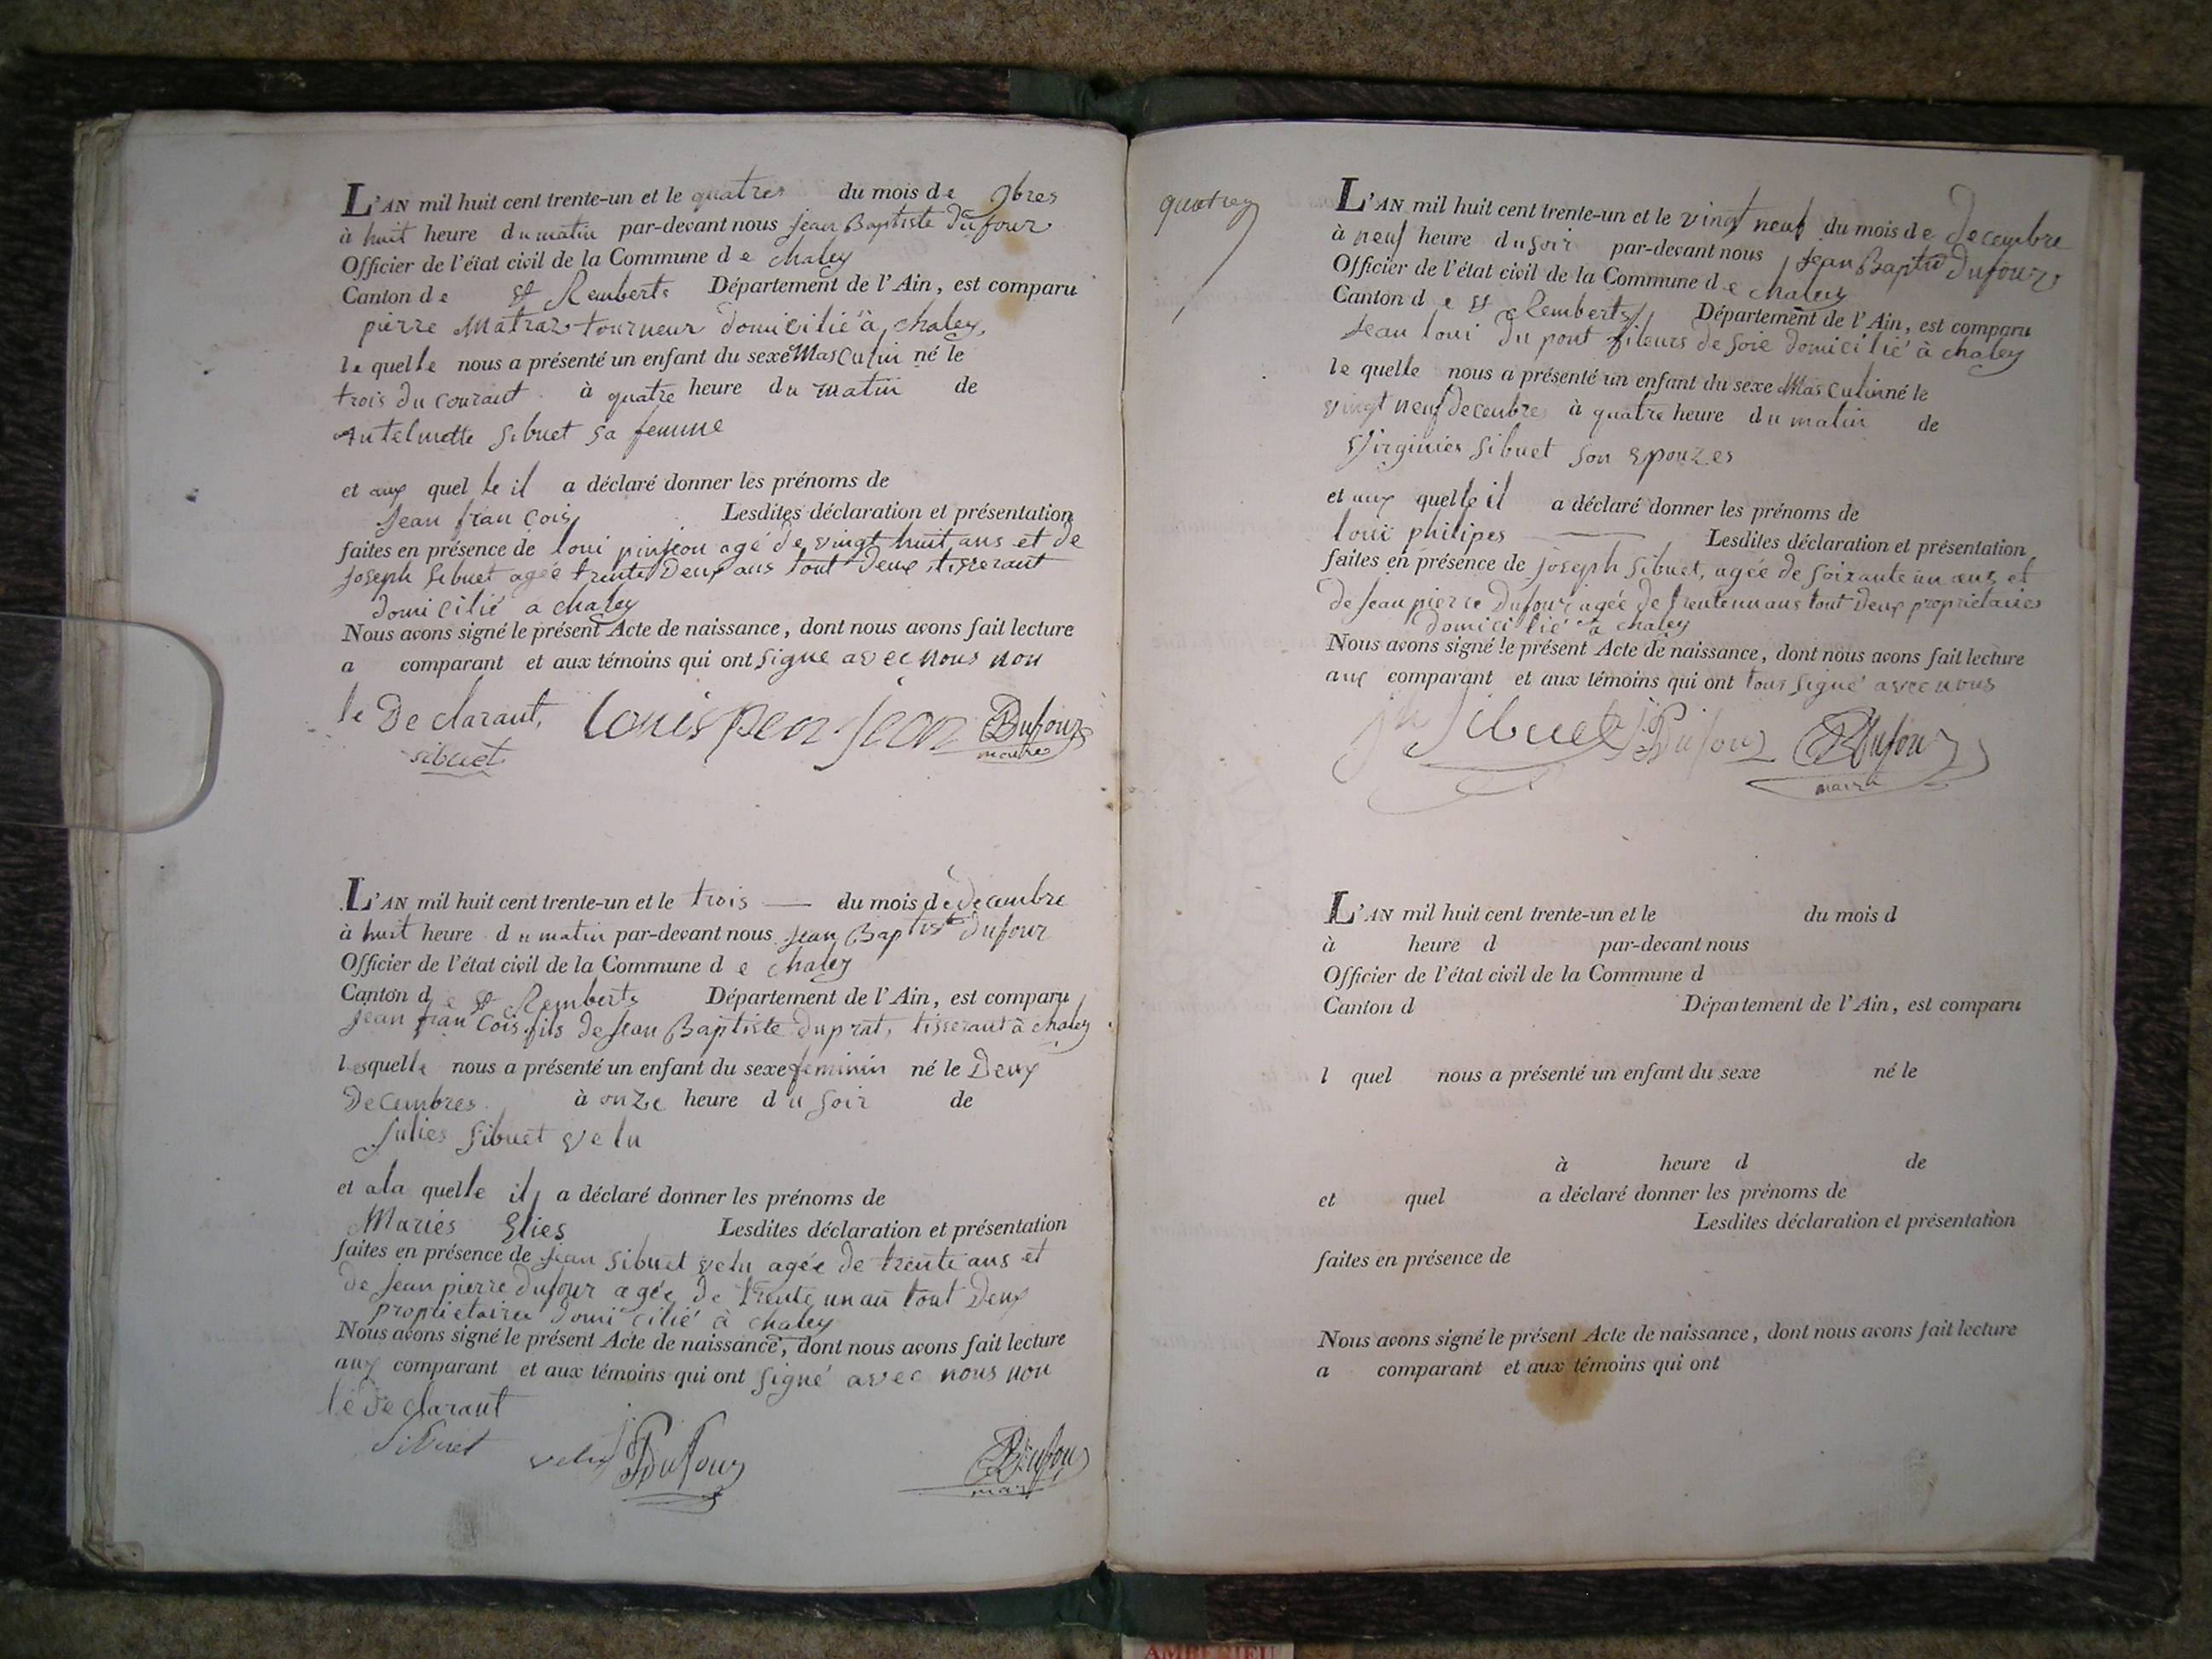 L'AN mil huit cent trente-un et le quatres du mois de 9bres
à huit heure du matin par-devant nous jean Baptiste Dufour
Officier de l'état civil de la Commune de chaley
Canton de St Remberts Département de l'Ain, est comparu
pierre Matraz tourneur domicilié à chaley,
le quelle nous a présenté un enfant du sexe Masculin né le
trois du courant à quatre heure du matin de
Antelmette Sibuet sa femme
et aux quel le il a déclaré donner les prénoms de
Jean francois Lesdites déclaration et présentation
faites en présence de loui pinjeon agé de vingt huit ans et de
joseph Sibuet agée trente Deux ans tout Deux tisserant
domicilié a chaley
Nous avons signé le présent Acte de naissance, dont nous avons fait lecture
a comparant et aux témoins qui ont signe avec nous non
le Declarant, Louis pen jean Dufour
sibuet maire
L'AN mil huit cent trente-un et le trois — du mois de decembre
à huit heure du matin par-devant nous jean Baptiste Dufour
Officier de l'état civil de la Commune de chaley
Canton de St Remberts Département de l'Ain, est comparu
jean francois fils de jean Baptiste Duprat, tisserant à chaley
lesquelle nous a présenté un enfant du sexe feminin né le Deux
Decembres à onze heure du soir de
Julies Sibuet velu
et ala quelle il a déclaré donner les prénoms de
Maries Elies Lesdites déclaration et présentation
faites en présence de jean sibuet velu agée de trente ans et
de jean pierre Dufour agée de trente un an tout Deux
proprietaires domicilié à chaley
Nous avons signé le présent Acte de naissance, dont nous avons fait lecture
aux comparant et aux témoins qui ont signé avec nous non
le declarant
Sibuet velu jp Dufour Dufour
quatres
L'AN mil huit cent trente-un et le vingt neuf du mois de decembre
à neuf heure du soir par-devant nous Jean Baptiste Dufour
Officier de l'état civil de la Commune de chaley
Canton de St Remberts Département de l'Ain, est comparu
Jean loui Du pont fileurs de soie domicilié à chaley
le quelle nous a présenté un enfant du sexe Masculin né le
vingt neuf decembre à quatre heure du matin de
Virginies Sibuet son Epouzes
et aux quelle il a déclaré donner les prénoms de
loui philipes — Lesdites déclaration et présentation
faites en présence de joseph Sibuet, agée de soixante un ans et
de jean pierre Dufour agée de trente un ans tout Deux proprietaires
domicilié a chaley
Nous avons signé le présent Acte de naissance, dont nous avons fait lecture
aux comparant et aux témoins qui ont tous signé avec nous
jh Sibuet jp Dufour Dufour
maire
L'AN mil huit cent trente-un et le du mois d
à heure d par-devant nous
Officier de l'état civil de la Commune d
Canton d Département de l'Ain, est comparu
l quel nous a présenté un enfant du sexe né le
à heure d de
et quel a déclaré donner les prénoms de
Lesdites déclaration et présentation
faites en présence de
Nous avons signé le présent Acte de naissance, dont nous avons fait lecture
a comparant et aux témoins qui ont